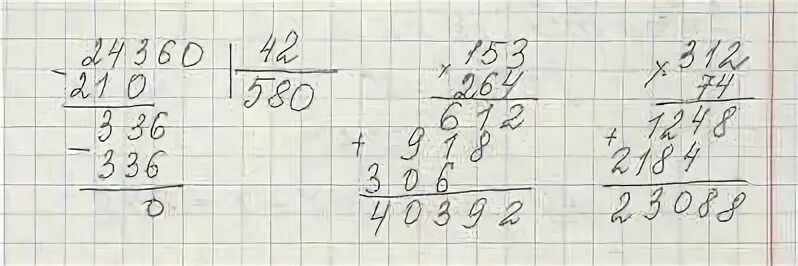 24360 | 42
- 210 | 580
336
- 336
0
× 153
264
612
+ 918
306
40392
× 312
74
1248
+ 2184
23088